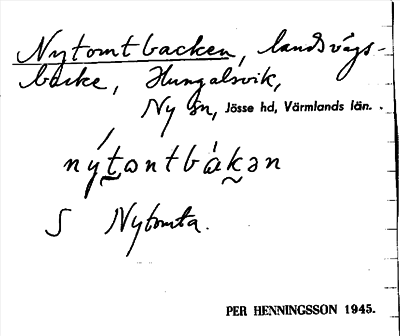 Nytomtbacken, landsvägs-
backe, Hungalsvik,
Ny sn, Jösse hd, Värmlands län.
nýtɷntbàkən
S Nytomta.
PER HENNINGSSON 1945.